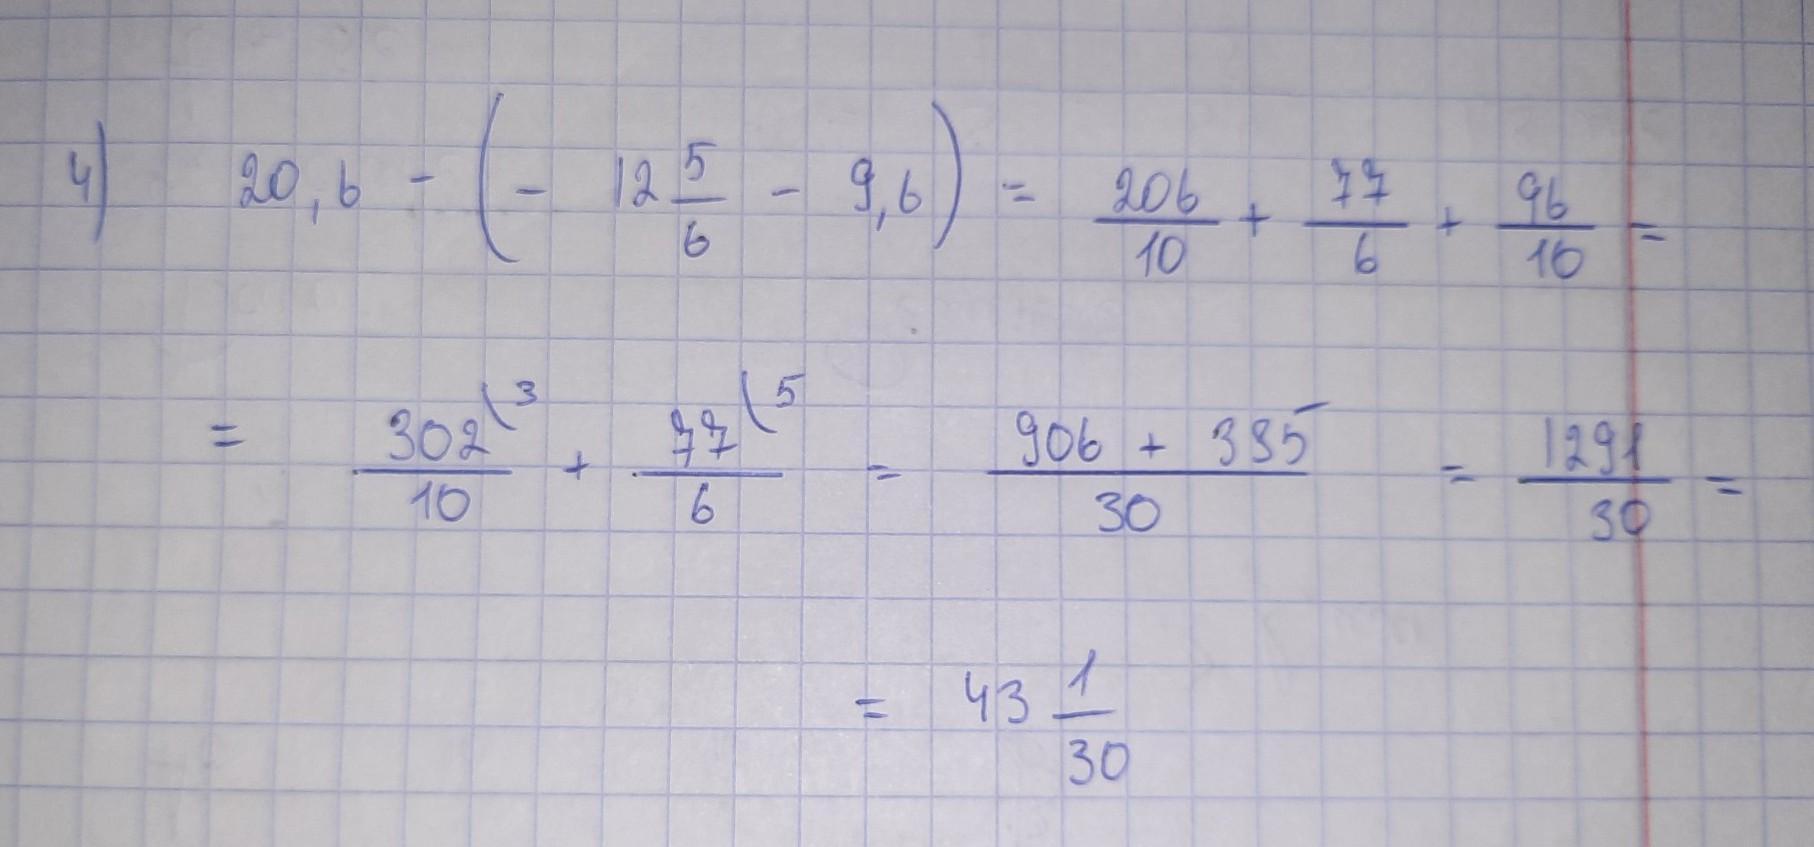 4) 20,6 - (- 12 5/6 - 9,6) = 206/10 + 77/6 + 96/10 =
= 302\3/10 + 77\5/6 = 906 + 385/30 = 1291/30 =
= 43 1/30